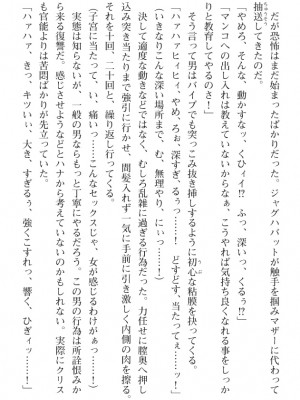 だが恐怖はまだ始まったばかりだった。ジャグハバットが触手を掴みマザーに代わって
抽送してきたのだ。
「やめろ、そんな、動かすなッ、くひィ!? ふっ、深い、くるぅ!?」
「マンコへの出し入れは教えていないからな。こうやれば気持ち良くなれる事をしっか
りと教育してやるのさ!」
そう言って男はバイブでも突っこみ抜き挿しするように初心な粘膜を抉ってくる。
「ハァハァヒィヒィ、やめ、ろぉ、深すぎ、るぅっ……! どすどす、当たってぇッ……!
いきなりこんな深い場所まで、む、無理やり、にいっ……!」
決して適度な動きなどではなく、むしろ乱雑に過ぎる行為だった。力任せに膣奥へ押し
込み突き当たりまで強引に行かせ、間髪入れず一気に手前に引き激しく内側の肉を擦る。
それを十回、二十回と、繰り返し行ってくる。
(子宮に当たって、い、痛いっ……こんなセックスじゃ、女が感じるわけがぁっ……!)
実態は知らないが、一般の男ならもっと丁寧にやるだろう。この男の行為は所詮恨みか
ら来る復讐だ。感じさせようなどとハナから考えていないのかもしれない。実際にクリス
も官能よりは苦悶ばかりが先立っていた。
「ハァハァ、きっ、キツい、大き、すぎるぅ、強くこすれっ、響く、ひぎィッ……!」